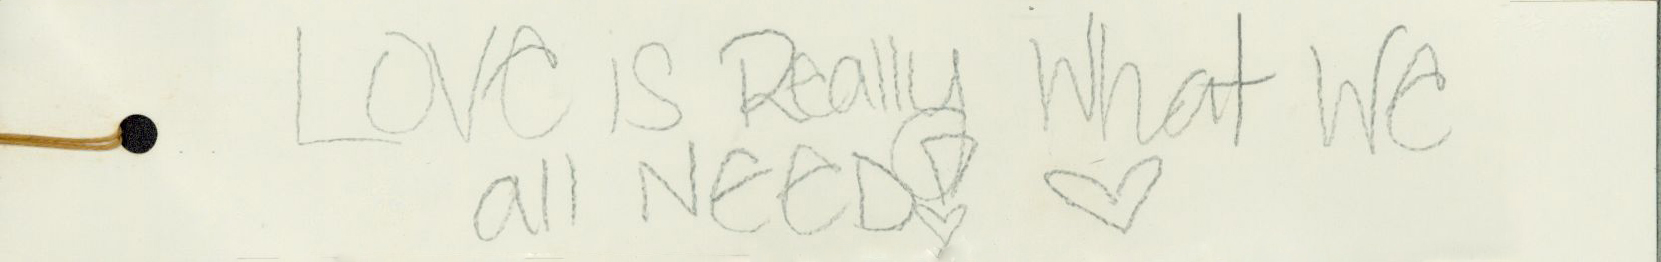 LOVE is Really What WE
all NEED! ♡